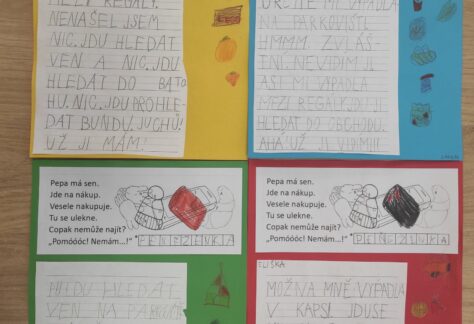 MEZI REGÁLY.
NENAŠEL JSEM
NIC. JDU HLEDAT
VEN A NIC. JDU
HLEDAT DO BATO
HU. NIC. JDU PROHLE-
DAT BUNDU. JUCHŮ!
UŽ JI MÁM!
URČITĚ MI VYPADLA
NA PARKOVIŠTI
HMMM ZVLÁŠ-
TNÍ. NEVIDÍM JI
ASI MI VYPADLA
MEZI REGÁLY. JDU JI
HLEDAT DO OBCHODU.
AHA! UŽ JI VIDÍM!!!
Pepa má sen.
Jde na nákup.
Vesele nakupuje.
Tu se ulekne.
Copak nemůže najít?
„Pomóóóc! Nemám…!“
PENĚŽENKA
Pepa má sen.
Jde na nákup.
Vesele nakupuje.
Tu se ulekne.
Copak nemůže najít?
„Pomóóóc! Nemám…!“
NI JDU HLEDAT
VEN NA
ELIŠKA
MOŽNA MNĚ VYPADLA
V KAPSI. JDU SE